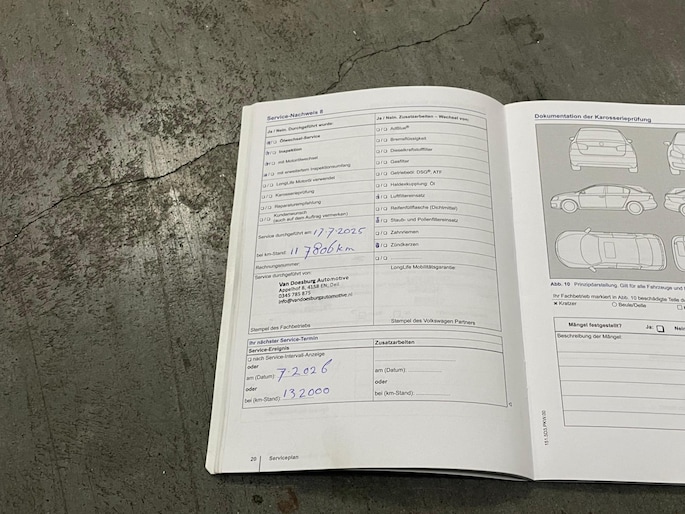 Service-Nachweis 8
Ja / Nein Durchgeführt wurde:
Ölwechsel-Service
Inspektion
mit Motorölwechsel
mit erweitertem Inspektionsumfang
LongLife Motoröl verwendet
Karosserieprüfung
Reparaturempfehlung
Kundenwunsch
(auch auf dem Auftrag vermerken)
Service durchgeführt am: 17-7-2025
bei km-Stand: 117806 km
Rechnungsnummer:
Service durchgeführt von:
Van Doesburg Automotive
Appelhof 8, 4158 EN, Deil
0345 785 875
info@vandoesburgautomotive.nl
Stempel des Fachbetriebs
Ja / Nein Zusatzarbeiten - Wechsel von:
AdBlue®
Bremsflüssigkeit
Dieselkraftstofffilter
Gasfilter
Getriebeöl: DSG®, ATF
Haldexkupplung: Öl
Luftfiltereinsatz
Reifenfüllflasche (Dichtmittel)
Staub- und Pollenfiltereinsatz
Zahnriemen
Zündkerzen
LongLife Mobilitätsgarantie
Stempel des Volkswagen Partners
Ihr nächster Service-Termin
Service-Ereignis
nach Service-Intervall-Anzeige
oder
am (Datum): 7-2026
oder
bei (km-Stand): 132000
Zusatzarbeiten
am (Datum):
bei (km-Stand):
20 Serviceplan
Dokumentation der Karosserieprüfung
Abb. 10 Prinzipdarstellung. Gilt für alle Fahrzeuge und
Ihr Fachbetrieb markiert in Abb. 10 beschädigte Teile
× Kratzer ○ Beule/Delle
Mängel festgestellt? Ja: Nein
Beschreibung der Mängel: